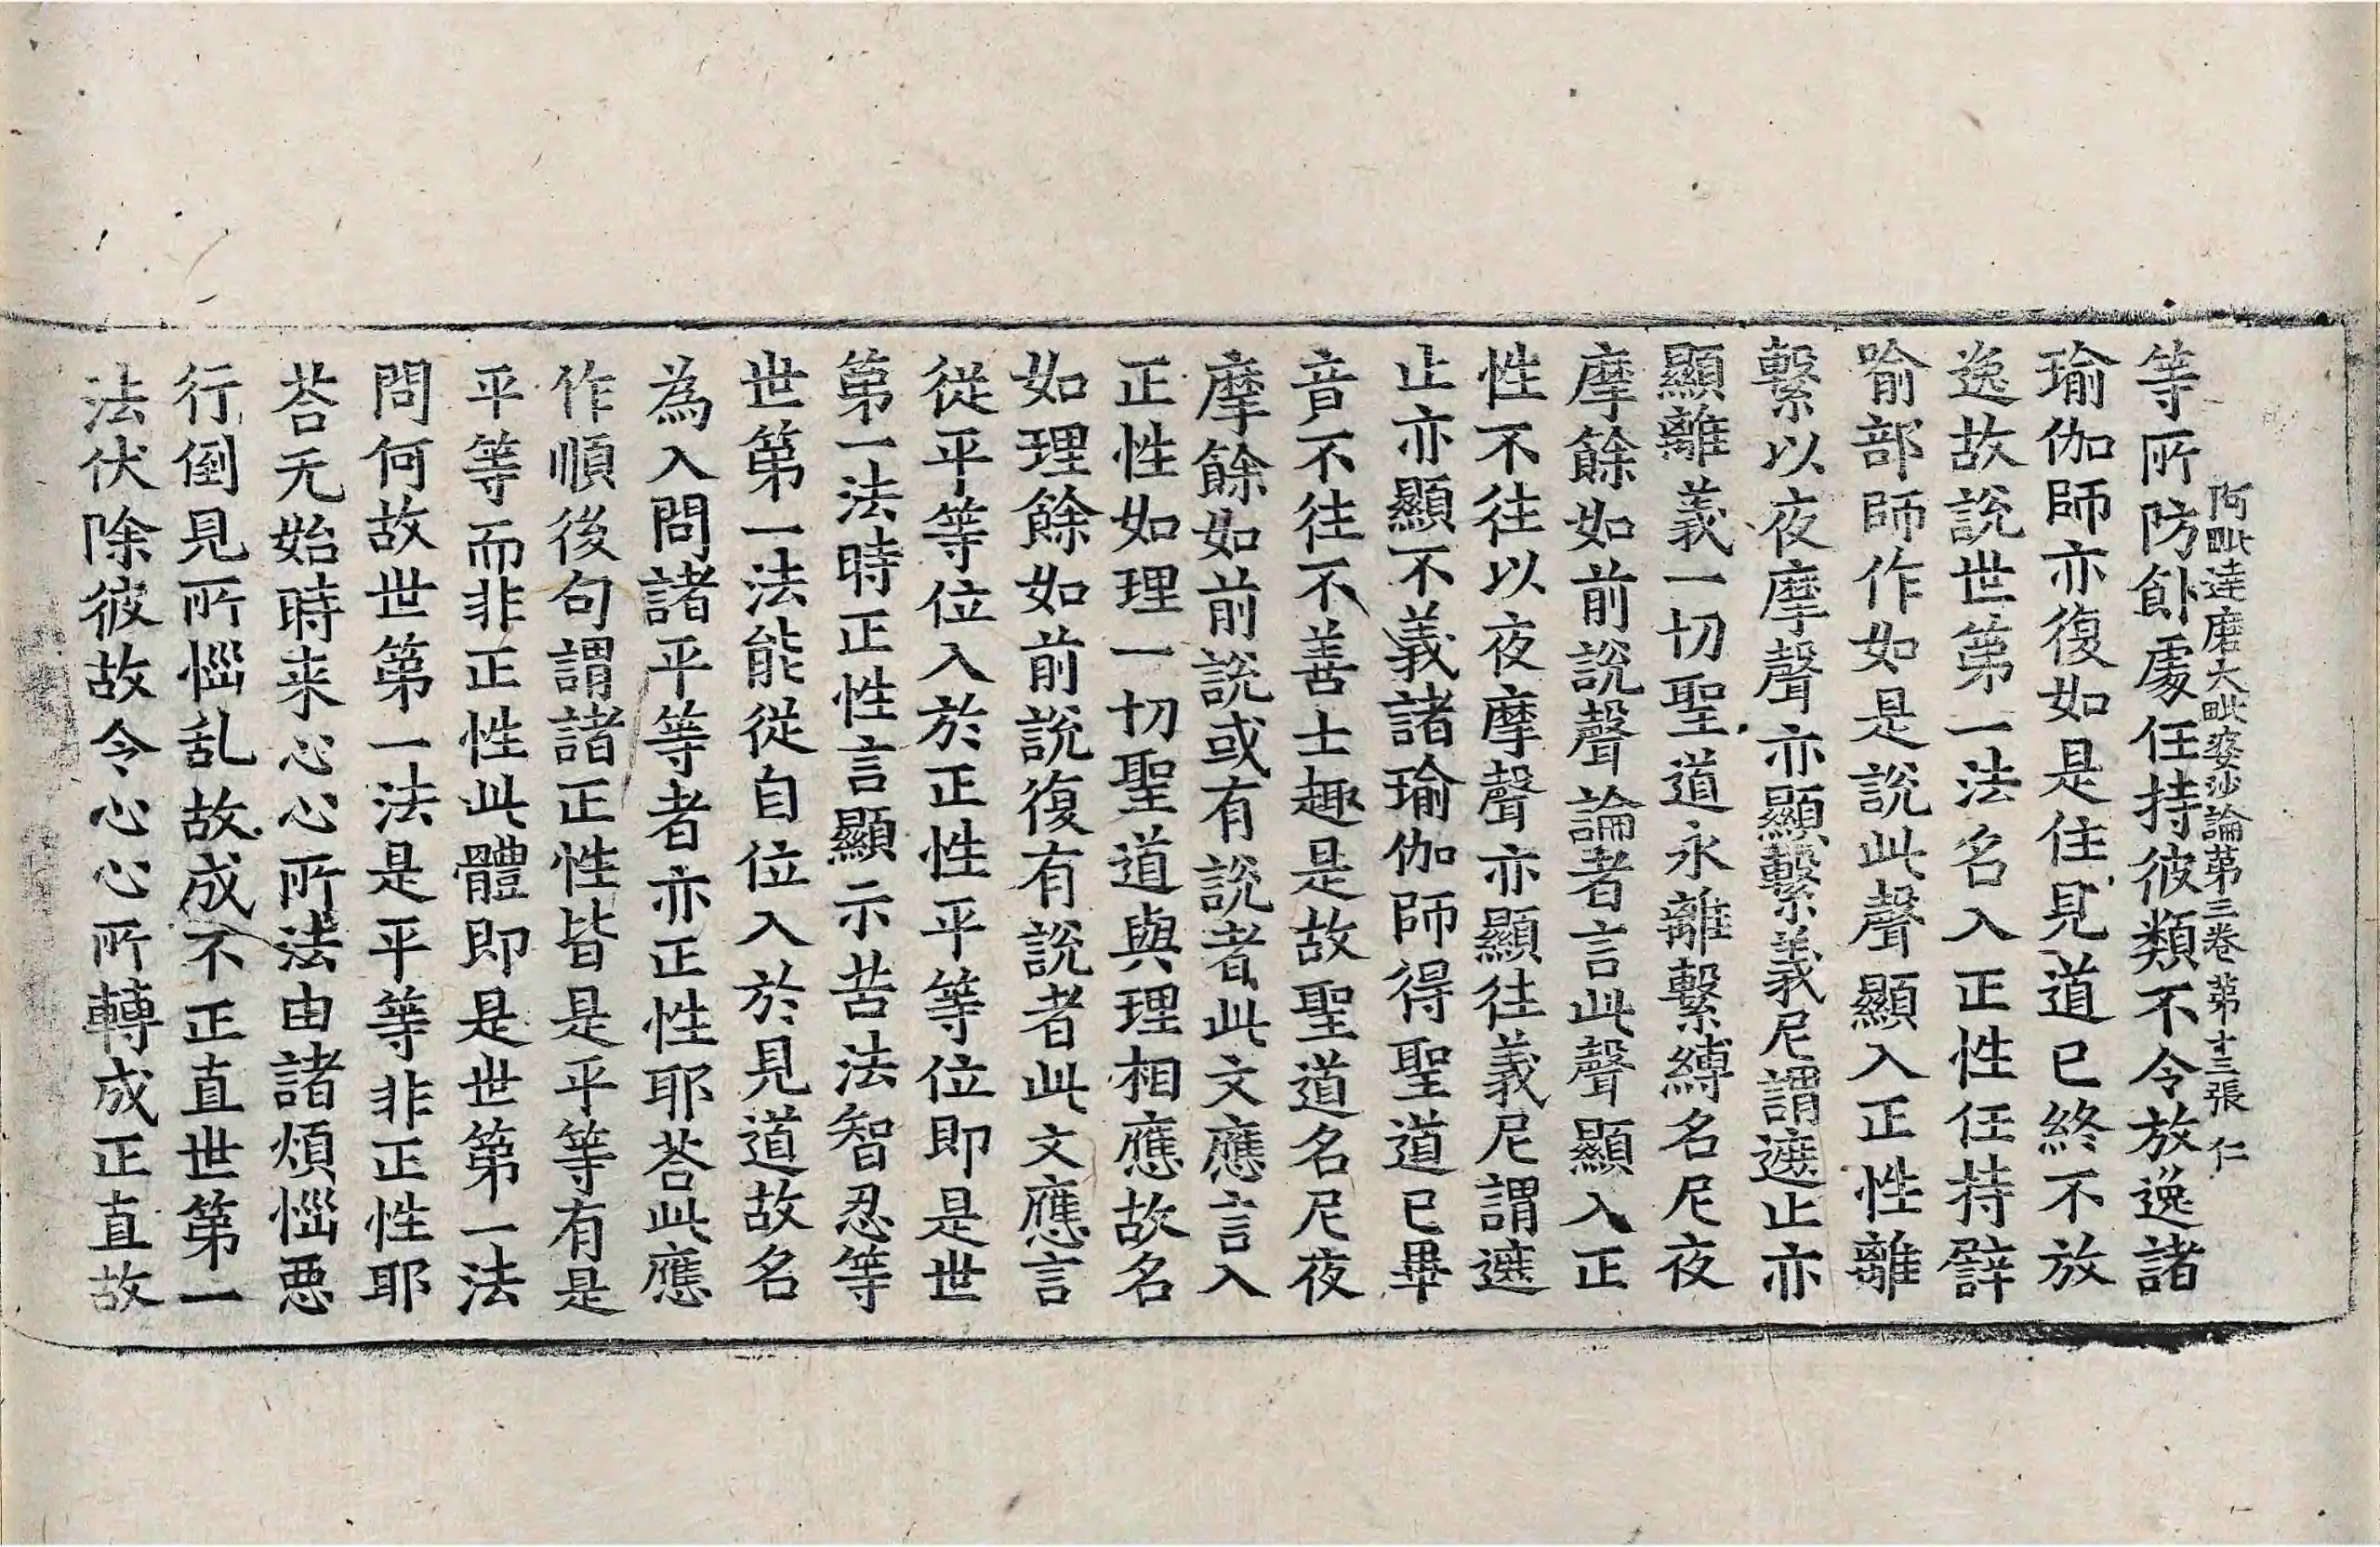 阿毗達磨大毗婆沙論第三卷第十三張 仁
等所防𩚁處任持彼類不令放逸諸
瑜伽師亦復如是住見道已終不放
逸故說世第一法名入正性任持譬
喻部師作如是說此聲顯入正性離
繫以夜摩聲亦顯繫義尼謂遮止亦
顯離義一切聖道永離繫縛名尼夜
摩餘如前說聲論者言此聲顯入正
性不往以夜摩聲亦顯往義尼謂遮
止亦顯不義諸瑜伽師得聖道已畢
音不往不善士趣是故聖道名尼夜
摩餘如前說或有說者此文應言入
正性如理一切聖道與理相應故名
如理餘如前說復有說者此文應言
從平等位入於正性平等位即是世
第一法時正性言顯示苦法智忍等
世第一法能從自位入於見道故名
為入問諸平等者亦正性耶荅此應
作順後句謂諸正性皆是平等有是
平等而非正性此體即是世第一法
問何故世第一法是平等非正性耶
荅无始時来心心所法由諸煩惱惡
行倒見所惱乱故成不正直世第一
法伏除彼故令心心所轉成正直故